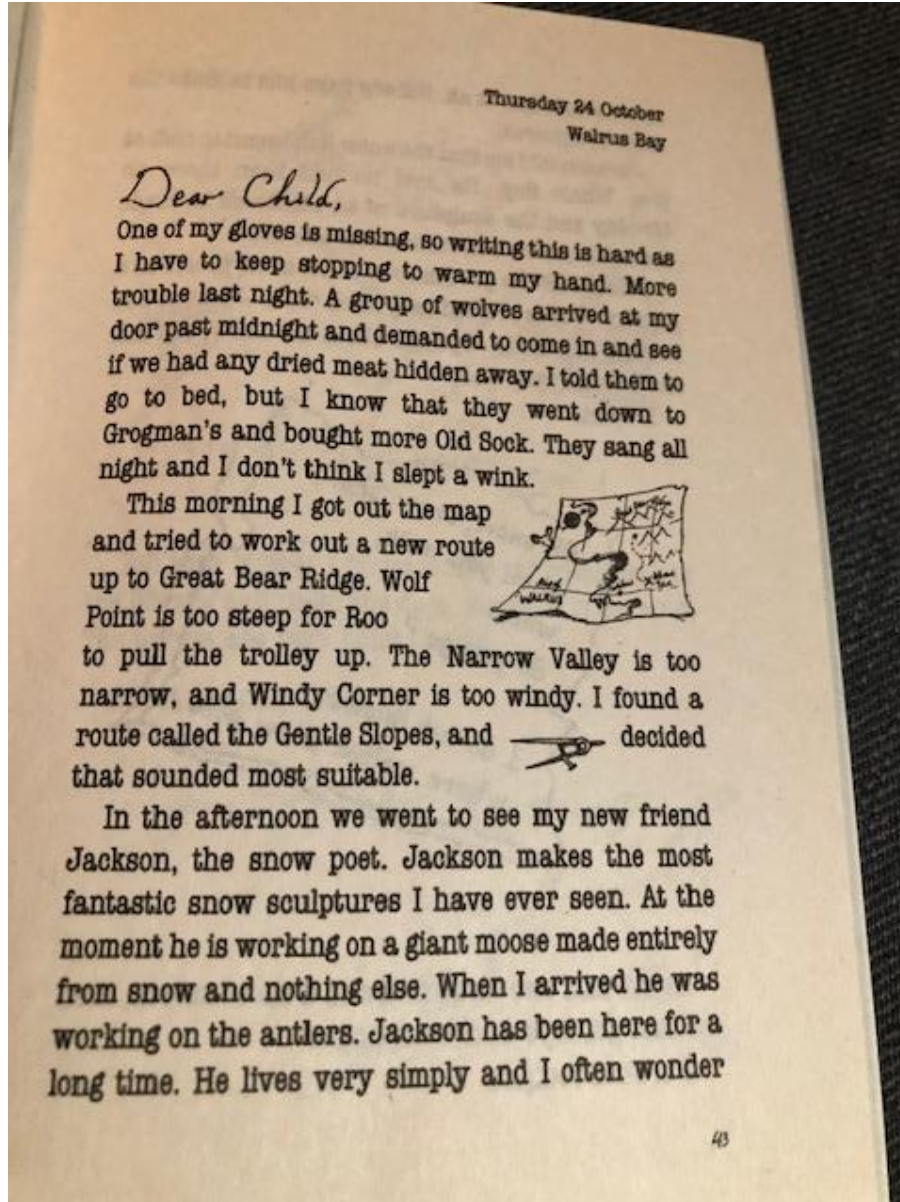 Thursday 24 October
Walrus Bay
Dear Child,
One of my gloves is missing, so writing this is hard as
I have to keep stopping to warm my hand. More
trouble last night. A group of wolves arrived at my
door past midnight and demanded to come in and see
if we had any dried meat hidden away. I told them to
go to bed, but I know that they went down to
Grogman's and bought more Old Sock. They sang all
night and I don't think I slept a wink.
This morning I got out the map
and tried to work out a new route
up to Great Bear Ridge. Wolf
Point is too steep for Roo
WALRUS
to pull the trolley up. The Narrow Valley is too
narrow, and Windy Corner is too windy. I found a
route called the Gentle Slopes, and decided
that sounded most suitable.
In the afternoon we went to see my new friend
Jackson, the snow poet. Jackson makes the most
fantastic snow sculptures I have ever seen. At the
moment he is working on a giant moose made entirely
from snow and nothing else. When I arrived he was
working on the antlers. Jackson has been here for a
long time. He lives very simply and I often wonder
43